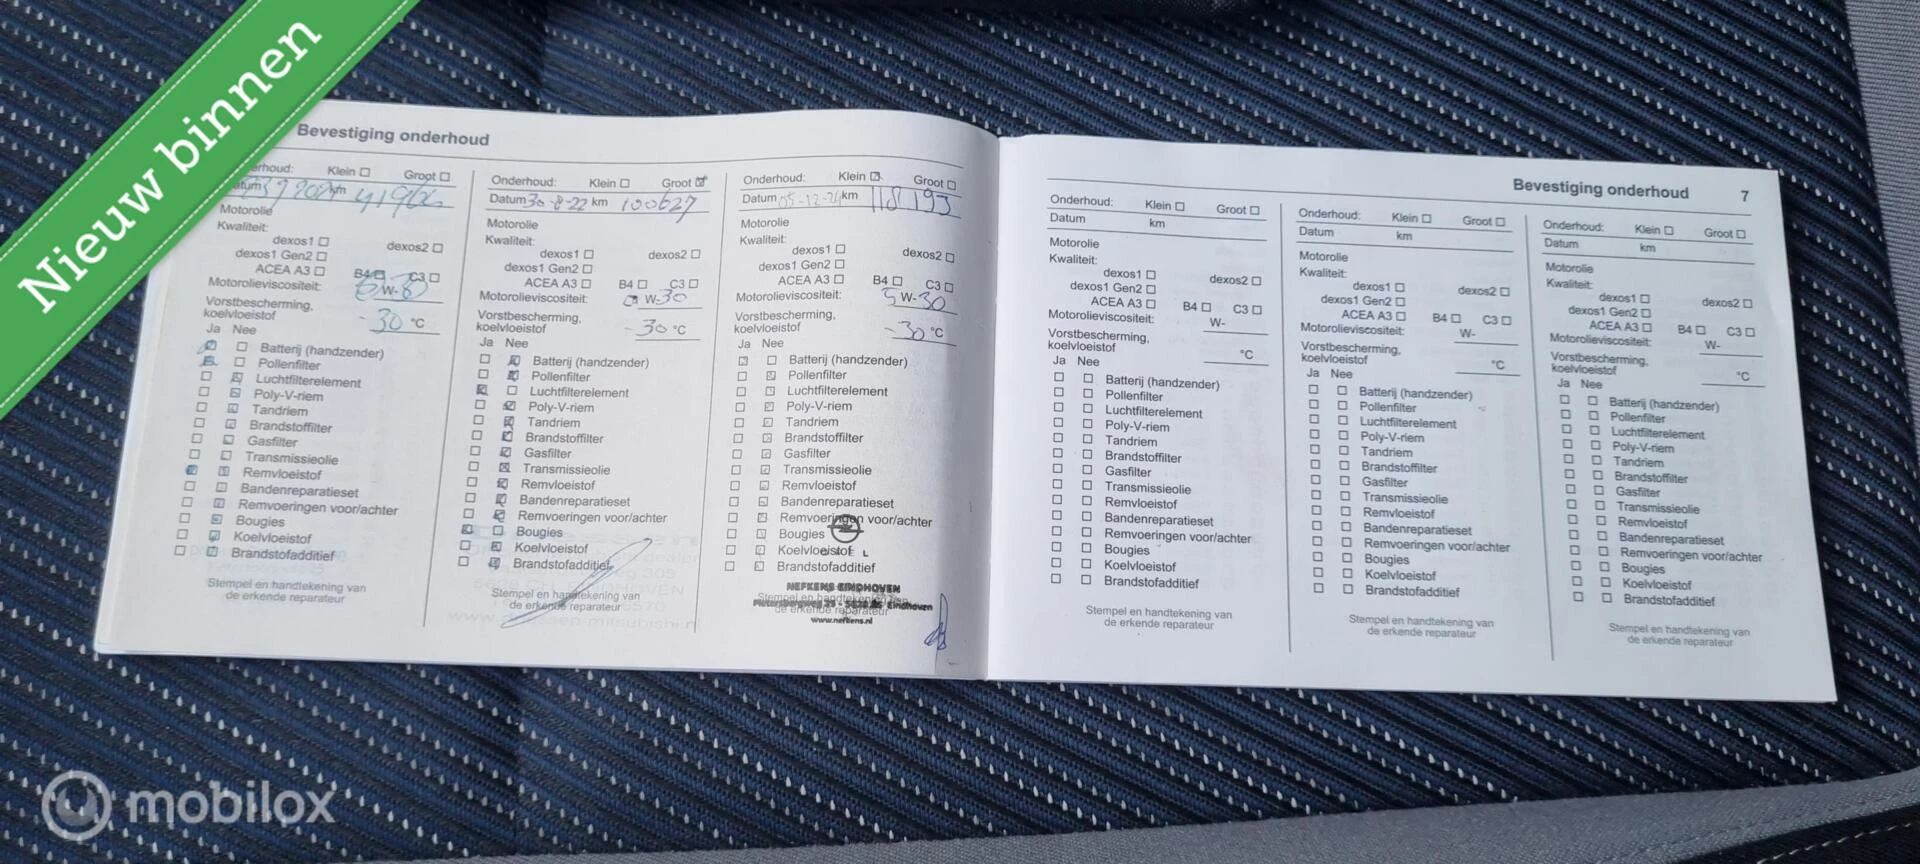 Nieuw binnen
Bevestiging onderhoud
Klein Groot
km
Motorolie
Kwaliteit:
dexos1 dexos2
dexos1 Gen2
ACEA A3 B4 C3
Motorolieviscositeit: W-
Vorstbescherming,
koelvloeistof -30 °C
Ja Nee
Batterij (handzender)
Pollenfilter
Luchtfilterelement
Poly-V-riem
Tandriem
Brandstoffilter
Gasfilter
Transmissieolie
Remvloeistof
Bandenreparatieset
Remvoeringen voor/achter
Bougies
Koelvloeistof
Brandstofadditief
Stempel en handtekening van
de erkende reparateur
Onderhoud: Klein Groot
Datum 30-8-22 km 100627
Motorolie
Kwaliteit:
dexos1 dexos2
dexos1 Gen2
ACEA A3 B4 C3
Motorolieviscositeit: W-30
Vorstbescherming,
koelvloeistof -30 °C
Ja Nee
Batterij (handzender)
Pollenfilter
Luchtfilterelement
Poly-V-riem
Tandriem
Brandstoffilter
Gasfilter
Transmissieolie
Remvloeistof
Bandenreparatieset
Remvoeringen voor/achter
Bougies
Koelvloeistof
Brandstofadditief
Stempel en handtekening van
de erkende reparateur
Onderhoud: Klein Groot
Datum 05-12-24 km 118193
Motorolie
Kwaliteit:
dexos1 dexos2
dexos1 Gen2
ACEA A3 B4 C3
Motorolieviscositeit: 5 W-30
Vorstbescherming,
koelvloeistof -30 °C
Ja Nee
Batterij (handzender)
Pollenfilter
Luchtfilterelement
Poly-V-riem
Tandriem
Brandstoffilter
Gasfilter
Transmissieolie
Remvloeistof
Bandenreparatieset
Remvoeringen voor/achter
Bougies
Koelvloeistof
Brandstofadditief
NEFKENS EINDHOVEN
Stempel en handtekening van
Eindhoven
de erkende reparateur
www.nefkens.nl
Bevestiging onderhoud 7
Onderhoud: Klein Groot
Datum km
Motorolie
Kwaliteit:
dexos1 dexos2
dexos1 Gen2
ACEA A3 B4 C3
Motorolieviscositeit: W-
Vorstbescherming,
koelvloeistof °C
Ja Nee
Batterij (handzender)
Pollenfilter
Luchtfilterelement
Poly-V-riem
Tandriem
Brandstoffilter
Gasfilter
Transmissieolie
Remvloeistof
Bandenreparatieset
Remvoeringen voor/achter
Bougies
Koelvloeistof
Brandstofadditief
Stempel en handtekening van
de erkende reparateur
Onderhoud: Klein Groot
Datum km
Motorolie
Kwaliteit:
dexos1 dexos2
dexos1 Gen2
ACEA A3 B4 C3
Motorolieviscositeit: W-
Vorstbescherming,
koelvloeistof °C
Ja Nee
Batterij (handzender)
Pollenfilter
Luchtfilterelement
Poly-V-riem
Tandriem
Brandstoffilter
Gasfilter
Transmissieolie
Remvloeistof
Bandenreparatieset
Remvoeringen voor/achter
Bougies
Koelvloeistof
Brandstofadditief
Stempel en handtekening van
de erkende reparateur
Onderhoud: Klein Groot
Datum km
Motorolie
Kwaliteit:
dexos1 dexos2
dexos1 Gen2
ACEA A3 B4 C3
Motorolieviscositeit: W-
Vorstbescherming,
koelvloeistof °C
Ja Nee
Batterij (handzender)
Pollenfilter
Luchtfilterelement
Poly-V-riem
Tandriem
Brandstoffilter
Gasfilter
Transmissieolie
Remvloeistof
Bandenreparatieset
Remvoeringen voor/achter
Bougies
Koelvloeistof
Brandstofadditief
Stempel en handtekening van
de erkende reparateur
mobilox